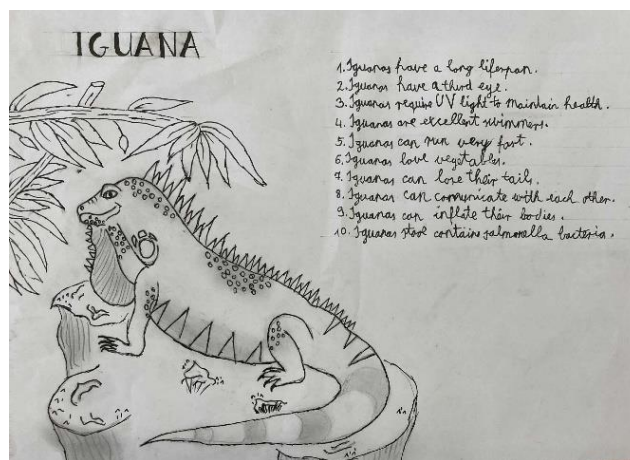 IGUANA
1. Iguanas have a long lifespan.
2. Iguanas have a third eye.
3. Iguanas require UV light to maintain health.
4. Iguanas are excellent swimmers.
5. Iguanas can run very fast.
6. Iguanas love vegetables.
7. Iguanas can lose their tails.
8. Iguanas can comunicate with each other.
9. Iguanas can inflate their bodies.
10. Iguanas stool contains salmonella bacteria.